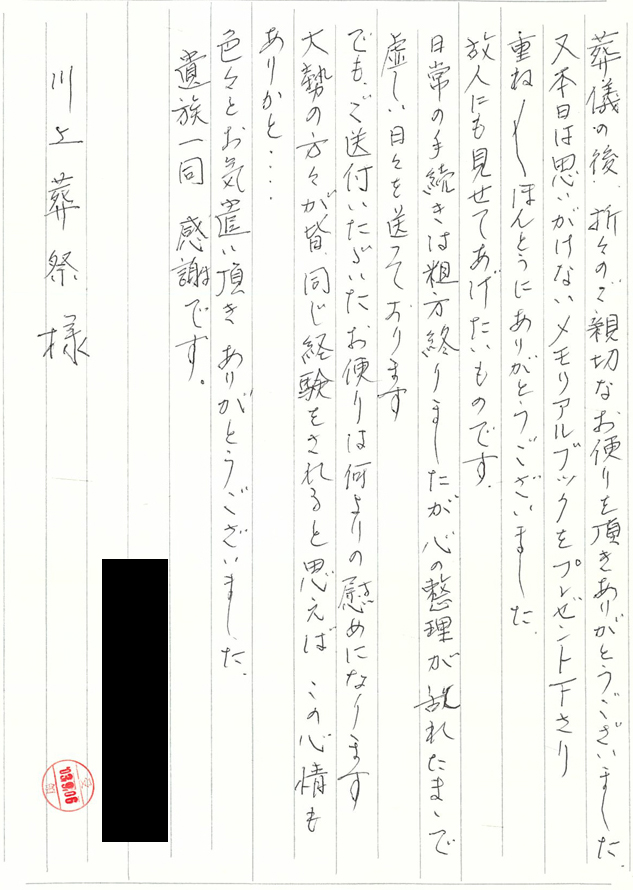 葬儀の後 折々のご親切なお便りを頂きありがとうございました.
又本日は思いがけないメモリアルブックをプレゼント下さり
重ね〱ほんとうにありがとうございました.
故人にも見せてあげたいものです.
日常の手続きは粗方終りましたが心の整理が乱れたまゝで
虚しい日々を送っております
でも、ご送付いたゞいたお便りは何よりの慰めになります
大勢の方々が皆、同じ経験をされると思えば この心情も
ありかと‥‥
色々とお気遣い頂き ありがとうございました.
遺族一同 感謝です。
川上葬祭様
'03.9.06